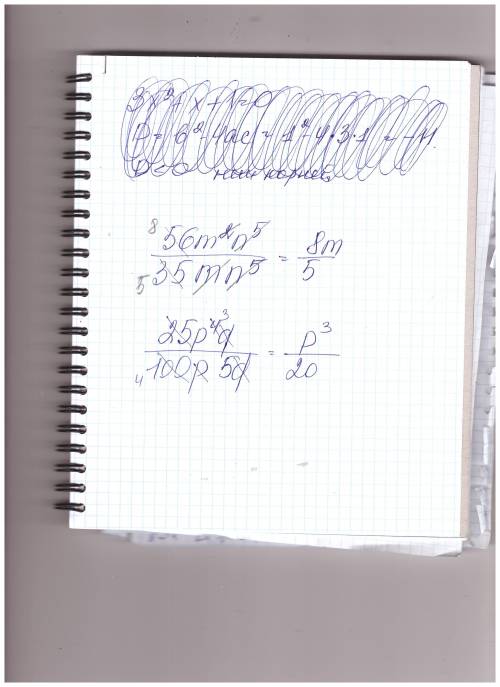 3x²+x+1=0
D=b²-4ac=1²-4·3·1=-11
D=0 нет корней
8 56m²n⁵ / 5 35mn⁵ = 8m / 5
25p⁴³q / 4 100p 5q = p³ / 20